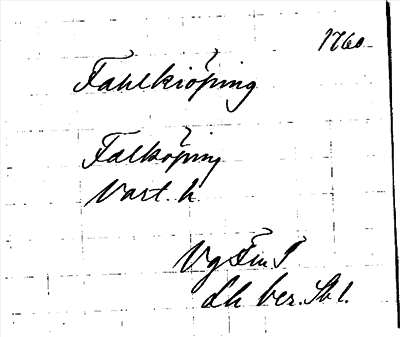 1760
Fahlkiöping
Falköping
Vart. h.
Vg Fm I
dh ber. Sk 1.